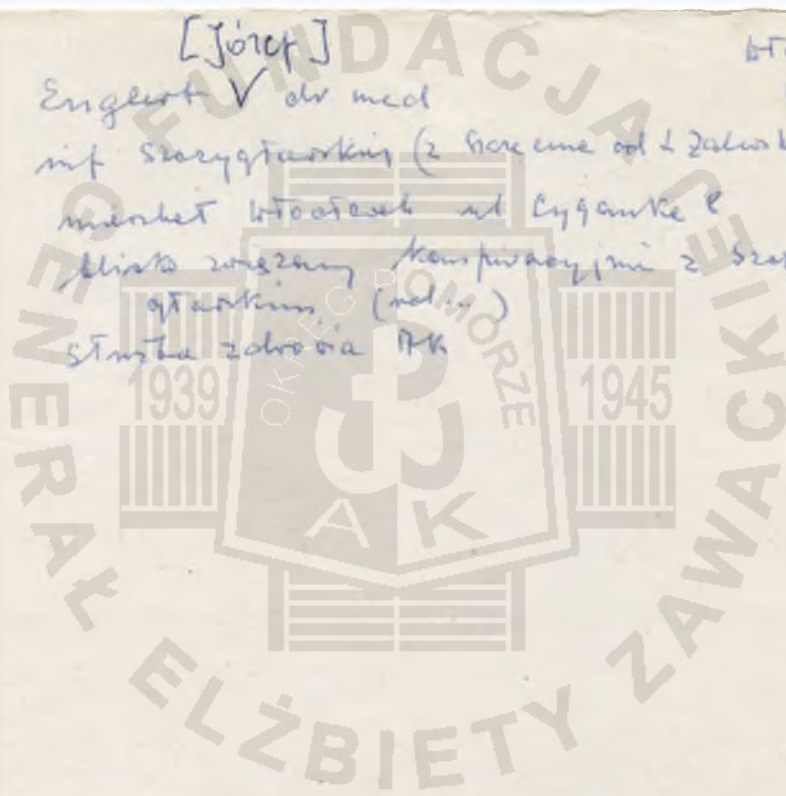 [Józef]
Englert V dr med
inf Szczygłowskiej (z
mieszkał Włocławek ul Cyganka 8
blisko związany konspiracyjnie z
(rel...)
służba zdrowia AK
FUNDACJA
GENERAŁ ELŻBIETY ZAWACKIEJ
OKRĘG POMORZE
1939 1945
AK